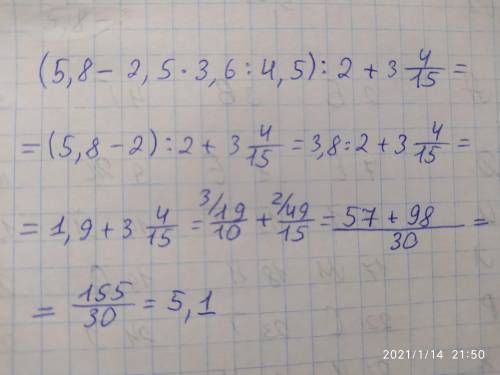 (5,8 − 2,5 · 3,6 : 4,5) : 2 + 3 4/15 =
= (5,8 − 2) : 2 + 3 4/15 = 3,8 : 2 + 3 4/15 =
= 1,9 + 3 4/15 = 3/ 19/10 + 2/ 49/15 = (57 + 98)/30 =
= 155/30 = 5,1
2021/1/14 21:50